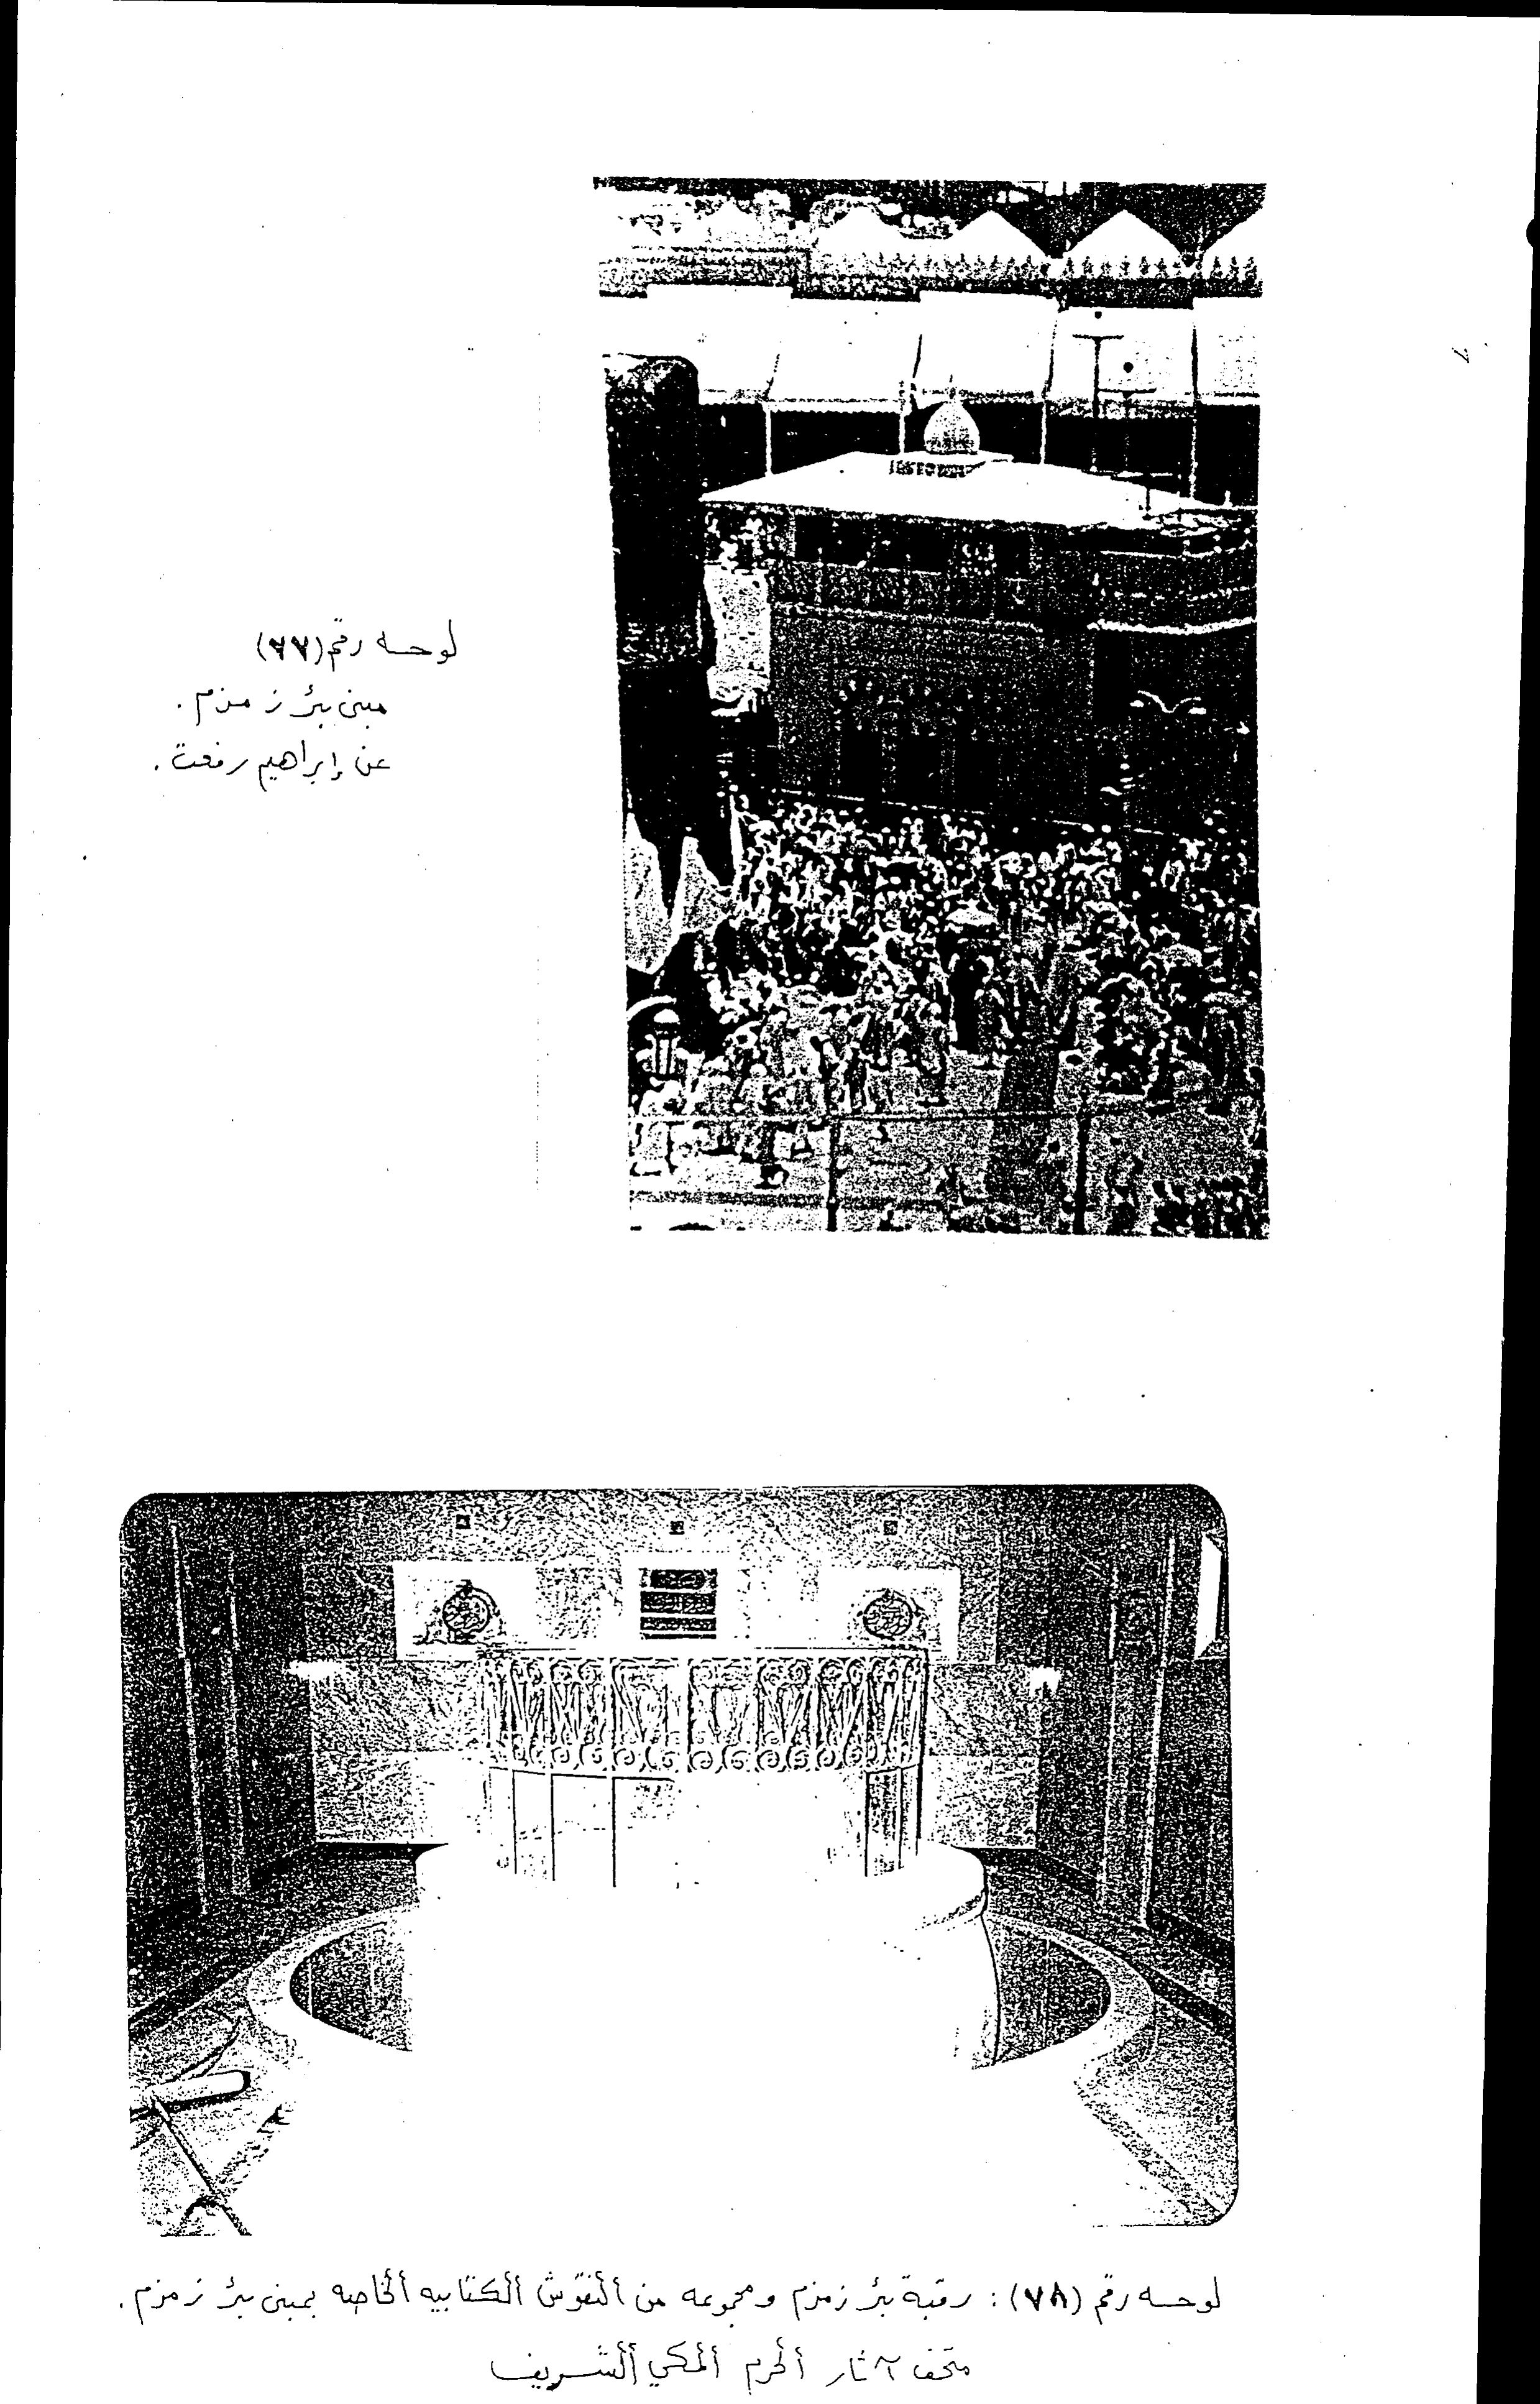 لوحه رقم (٧٧)
مبنى بئر زمزم.
عن إبراهيم رفعت.
لوحه رقم (٧٨) : رقبة بئر زمزم ومجموعه من النقوش الكتابيه الخاصه بمبنى بئر زمزم.
متحف آثار الحرم المكي الشريف